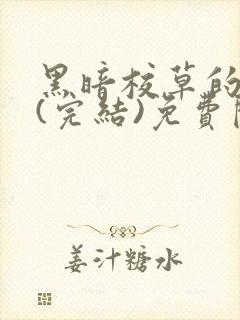 黑暗校草的
(完結)免費
姜汁糖水